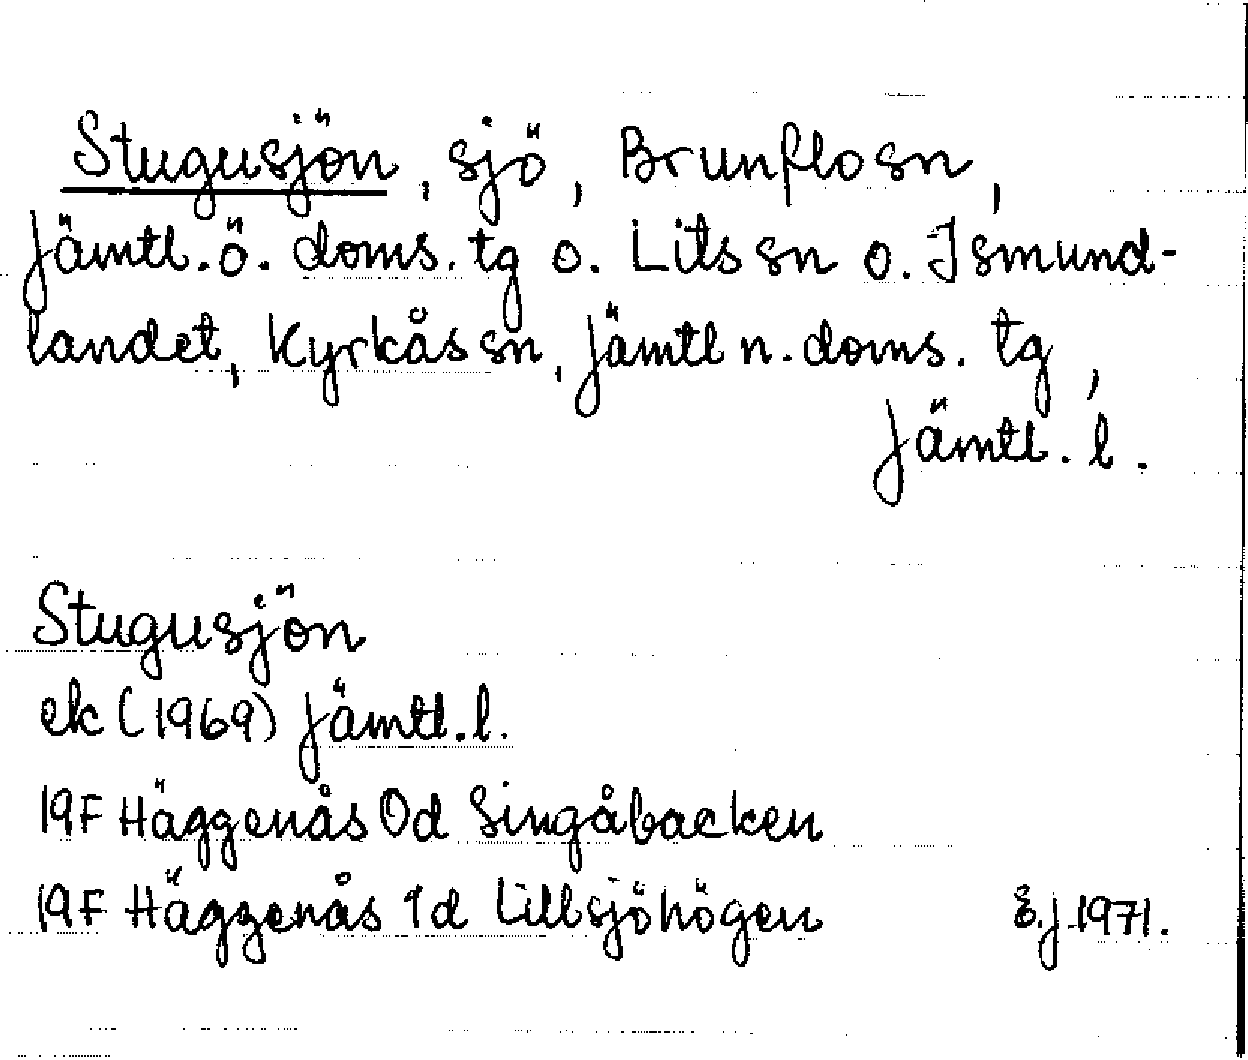 Stugusjön, sjö, Brunflo sn,
Jämtl. ö. doms. tg o. Lits sn o. Ismund-
landet, Kyrkås sn, Jämtl n. doms. tg,
Jämtl. l.
Stugusjön
ek (1969) Jämtl. l.
19F Häggenås 0d Singåbacken
19F Häggenås 1d Lillsjöhögen
E.J 1971.